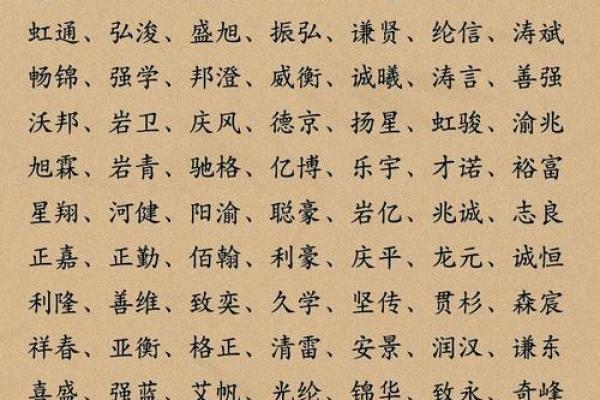 虹通、弘浚、盛旭、振弘、谦贤、纶信、涛斌
畅锦、强学、邦澄、威衡、诚曦、涛言、善强
沃邦、岩卫、庆风、德京、扬星、虹骏、渝兆
旭霖、岩青、驰格、亿博、乐宇、才诺、裕富
星翔、河健、阳渝、聪豪、岩亿、兆诚、志良
正嘉、正勤、佰翰、利豪、庆平、龙元、诚恒
利隆、善维、致奕、久学、坚传、贯杉、森宸
祥春、亚衡、格正、清雷、安景、润汉、谦东
喜盛、强蓝、艾帆、光纶、锦华、致永、奇峰